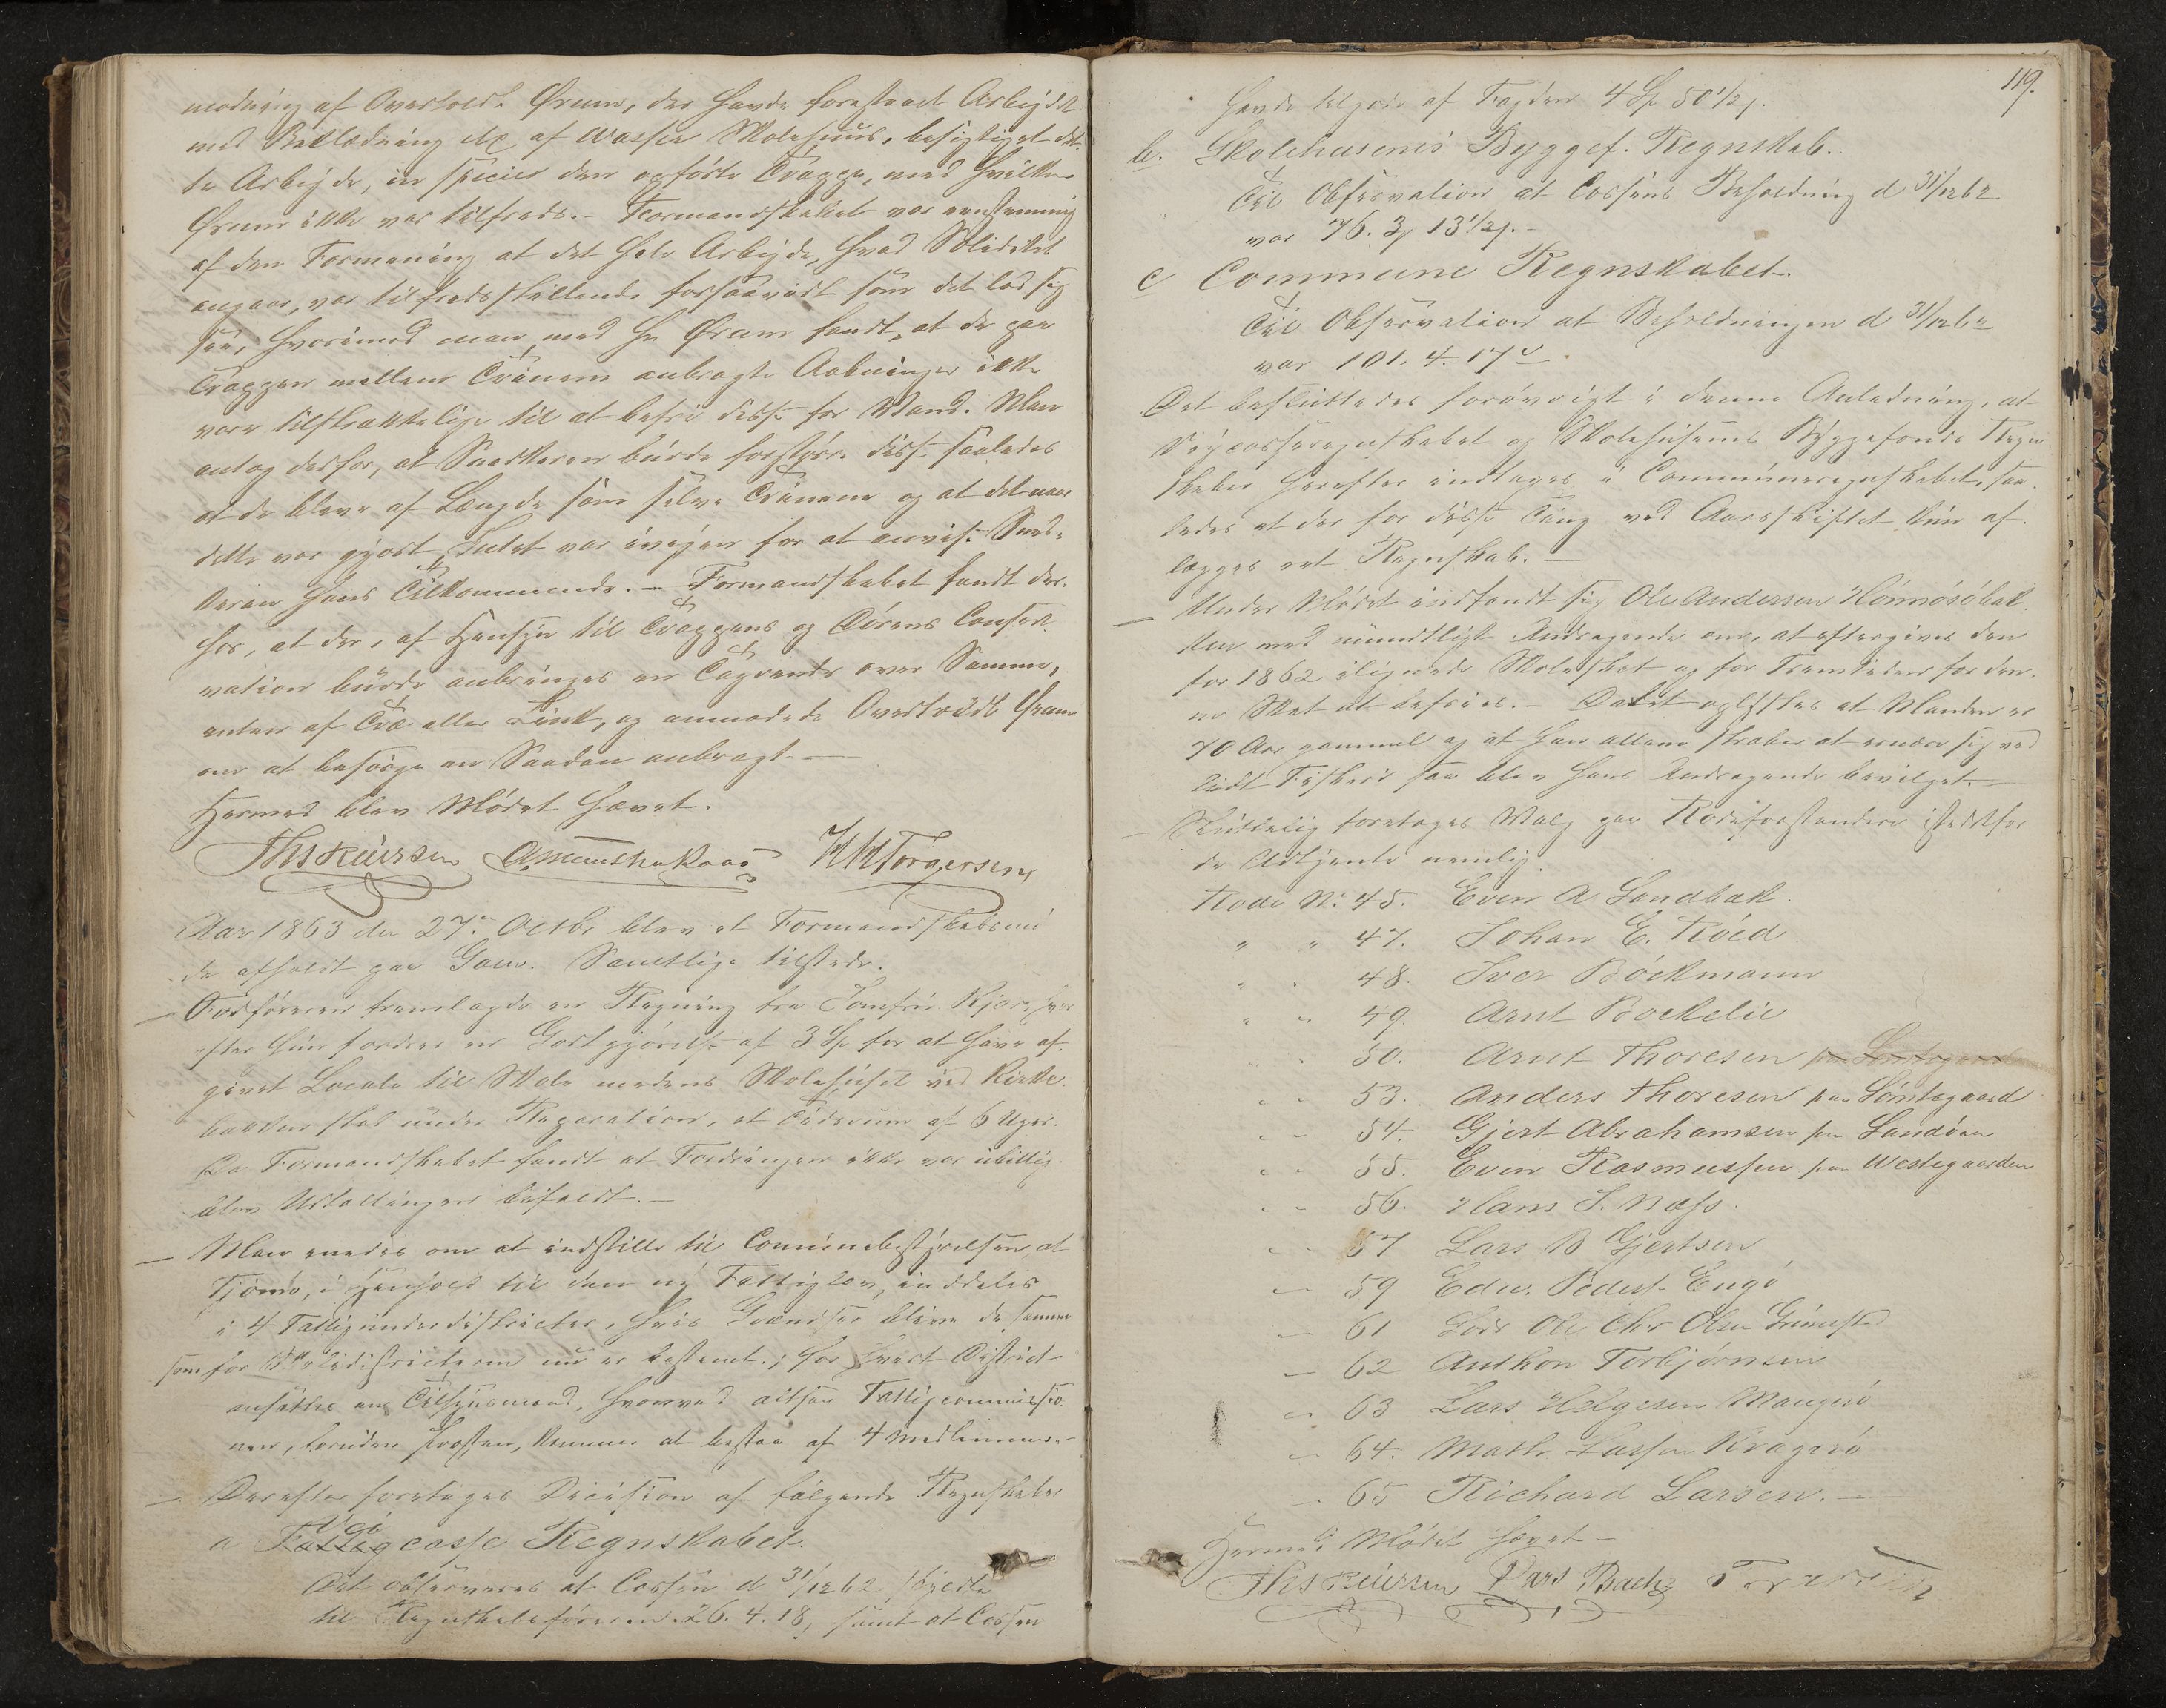 modning af Overtoldb. Ørum, der havde forestaaet Arbeidet
med Beklædning etc af Wasser Skolehuus, besigtiget det-
te Arbeyde, in specie den opførte Trappe, med hvilken
Ørum ikke var tilfreds. - Formandskabet var eenstemmig
af den Formening at det hele Arbeyde, hvad Soliditet
angaar, var tilfredsstillende forsaavidt som det lod sig
see, hvorimod man med Hr Ørum fandt, at de paa
Trappen mellem Trinene anbragte Aabninger ikke
vare tilstrækkelige til at befri disse for Vand. Man
antog derfor, at Snedkeren burde forstørre disse saaledes
at de bleve af Længde som selve Trinene og at det naar
dette var gjort, Intet var iveien for at anvise Sned-
keren hans Tilkommende. - Formandskabet fandt der-
hos, at der, af Hensyn til Trappens og Dørens Conser-
vation burde anbringes en Tagrende over Samme,
enten af Træ eller Zink, og anmodede Overtoldb. Ørum
om at besørge en Saadan anbragt. -
Hermed blev Mødet hævet.
Ths Reiersen A. Munster Kaas H H Torgersen
Aar 1863 den 27de Octbr blev et Formandskabsmø-
de afholdt paa Goen. Samtlige tilstede.
- Ordføreren fremlagde en Regning fra Jomfru Kjær, hvor
efter hun fordrer en Godtgjørelse af 3 Sp for at have af-
givet Locale til Skole medens Skolehuset ved Kirke-
bakken stod under Reparation, et Tidsrum af 6 Uger.
Da Formandskabet fandt at Fordringen ikke var ubillig
blev Udbetalingen bifaldt. -
- Man enedes om at indstille til Communebestyrelsen, at
Tjømø, i Henhold til den ny Fattiglov, inddeles
i 4 Fattigunderdistricter, hvis Grændser blive de samme
som for Skoledistricterne nu er bestemt; for hvert District
ansættes en Tilsynsmand, hvorved altsaa Fattigcommissio-
nen, foruden Præsten, kommer at bestaa af 4 Medlemmer. -
- Derefter foretoges Decision af følgende Regnskaber
Vei
a Fattigcasse Regnskabet.
Det observeres at Cassen d 31/12 62 skyldte
til Regnskabsføreren 26. 4. 18, samt at Cassen
119.
havde tilgode af Fogden 4 Sp 50 1/2 s.
b. Skolehusenes Byggef. Regnskab.
Til Observation at Cassens Beholdning d 31/12 62
var 76. 3 13 1/2 s. -
c Commune Regnskabet.
Til Observation at Beholdningen d 31/12 62
var 101. 4. 17
Det besluttedes forøvrigt i denne Anledning, at
Veicasseregnskabet og Skolehusenes Byggefonds Regn-
skaber herefter indtages i Communeregnskabet, saa-
ledes at der for disse Ting ved Aarsskiftet kun af-
lægges eet Regnskab. -
- Under Mødet indfandt sig Ole Andersen Hønnøsøbak-
ken med mundtligt Andragende om, at eftergives den
for 1862 ilignede Skoleskat og for Fremtiden for den-
ne Skat at befries. - Da det oplystes at Manden er
70 Aar gammel og at han allene stræber at ernære sig ved
lidt Fiskeri saa blev hans Andragende bevilget. -
- Sluttelig foretoges Valg paa Rodeforstandere istedetfor
de Udtjente nemlig
Rode No 45. Even A Sandbæk.
" " 47. Johan E. Røed
" " 48. Iver Bøckmann
" " 49. Arnt Boekelie
" " 50. Arnt Thoresen
" " 53. Anders Thoresen paa Søntegaard
" " 54. Gjert Abrahamsen paa Sandøen
" " 55. Even Rasmussen paa Westegaarden
" " 56. Hans J. Næss.
" " 57 Lars B Gjertsen
" 59 Edw. Peders. Engø
" 61 Lods Ole Chr Olsen Grimestad
" 62 Anthon Torbjørnsen
" 63 Lars Helgesen Mangerø
" 64. Math. Larsen Kragerø
" 65 Richard Larsen. -
Hermed Mødet hævet -
Ths Reiersen Lars Bache